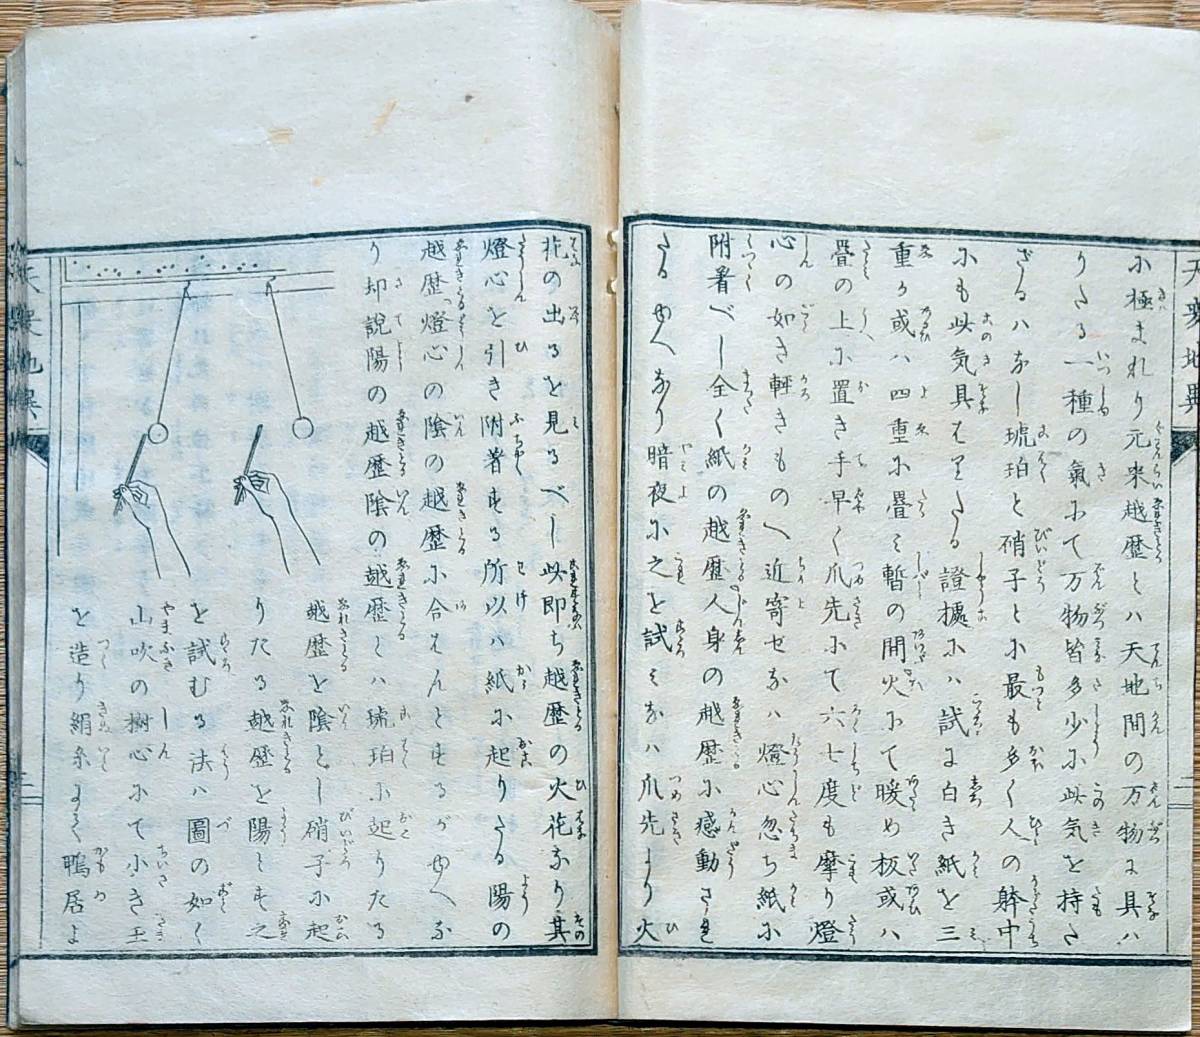 天変地異
に極まれり元来越歴とハ天地間の万物に具ハ
りたる一種の氣にて万物皆多少に此気を持さ
ざるハなし琥珀と硝子とに最も多く人の躰中
にも此気具はりたる證據にハ試に白き紙を三
重か或ハ四重に畳み暫の間火にて暖め板或ハ
畳の上に置き手早く爪先にて六七度も摩り燈
心の如き軽きものへ近寄せなハ燈心忽ち紙に
附着べし全く紙の越歴人身の越歴に感動され
たるゆへなり暗夜に之を試みなハ爪先より火
花の出るを見るべし此即ち越歴の火花なり其
燈心を引き附着する所以ハ紙に起りたる陽の
越歴燈心の陰の越歴に合はんとするがゆへな
り却説陽の越歴陰の越歴とハ琥珀に起りたる
越歴を陰とし硝子に起
りたる越歴を陽とす之
を試むる法ハ圖の如く
山吹の樹心にて小き玉
を造り絹糸にて鴨居よ
天變地異